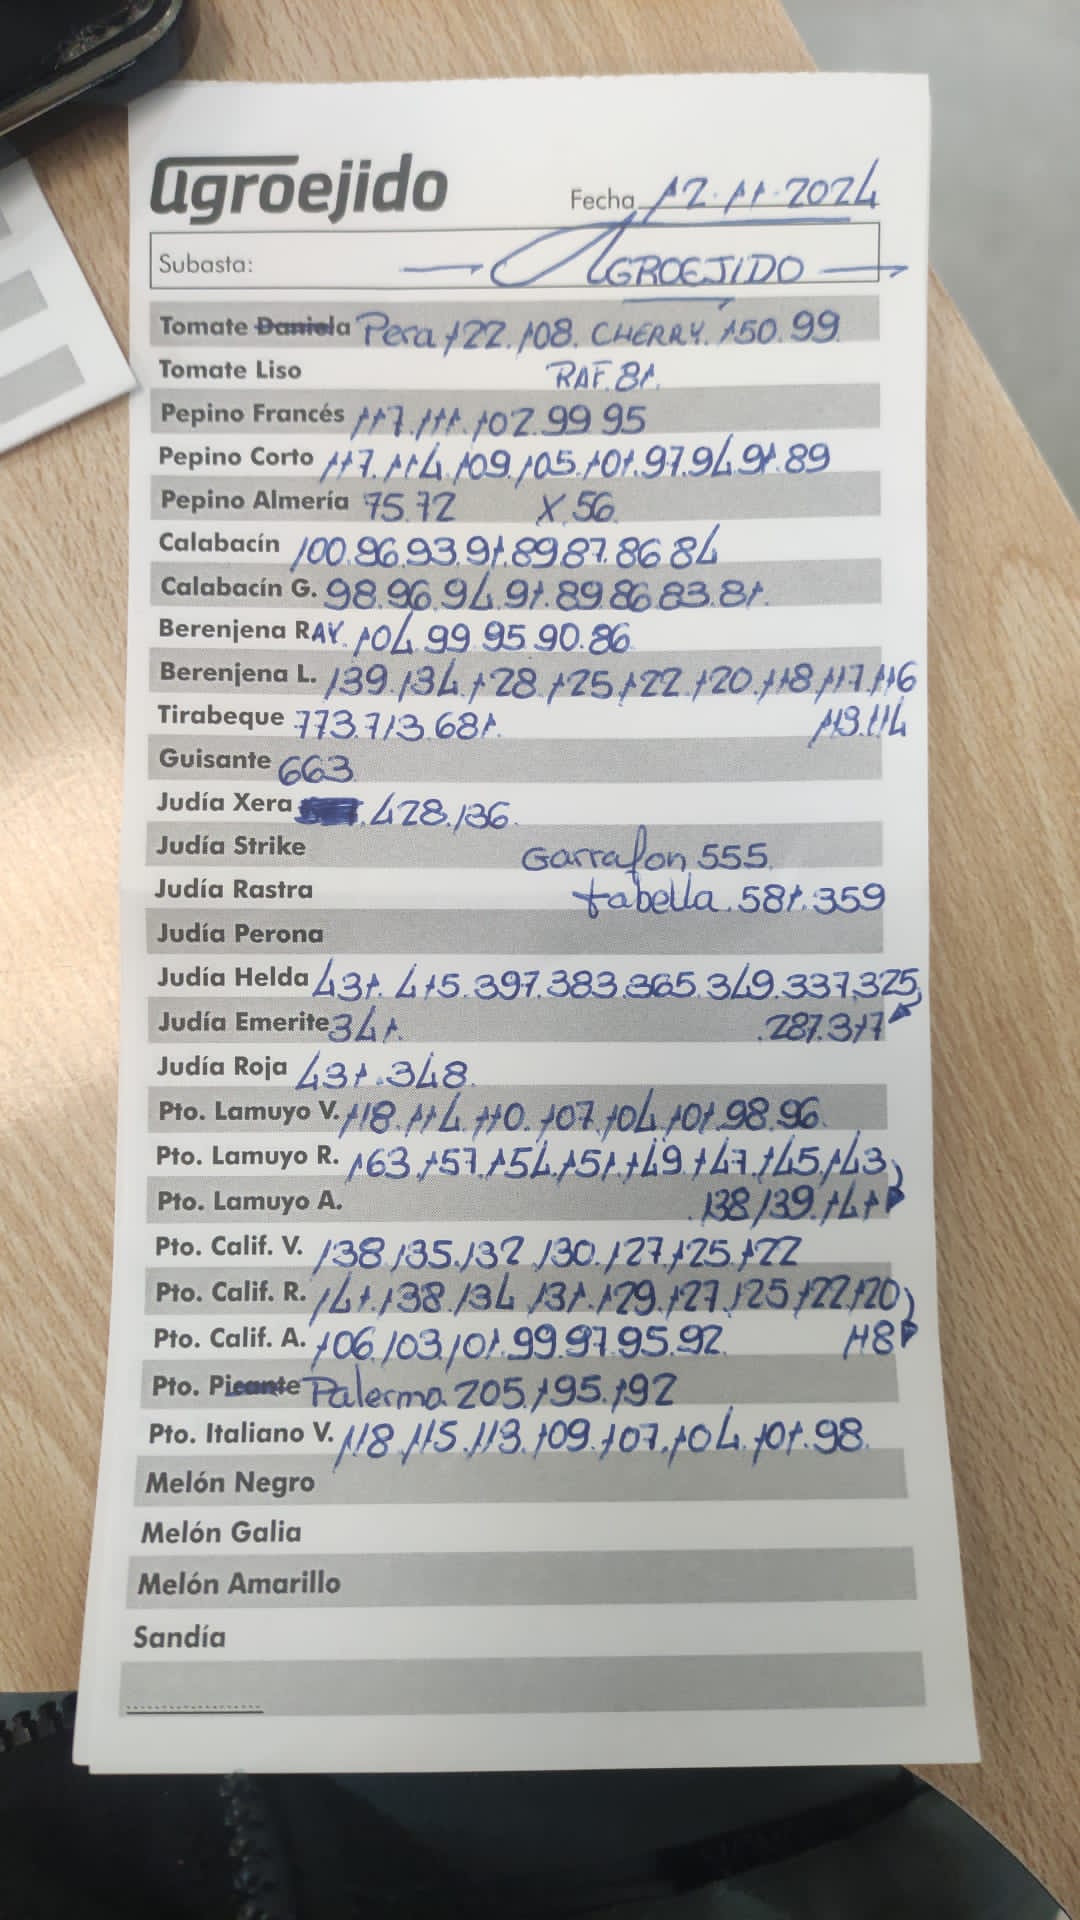 agroejido Fecha 12.11.2024
Subasta: AGROEJIDO
Tomate Daniela Pera 122.108. CHERRY. 150.99
Tomate Liso RAF. 81.
Pepino Francés 117.111.102.99.95
Pepino Corto 117.114.109.105.101.97.94.91.89
Pepino Almería 75.72 X.56
Calabacín 100.96.93.91.89.87.86.84
Calabacín G. 98.96.94.91.89.86.83.81.
Berenjena RAY. 104.99.95.90.86
Berenjena L. 139.134.128.125.122.120.118.117.116
Tirabeque 773.713.681. 113.114
Guisante 663
Judía Xera .428.136.
Judía Strike Garrafon 555.
Judía Rastra tabella. 581.359
Judía Perona
Judía Helda 431.415.397.383.365.349.337.325
Judía Emerite 341. .287.317
Judía Roja 431.348.
Pto. Lamuyo V. 118.114.110.107.104.101.98.96.
Pto. Lamuyo R. 163.157.154.151.149.147.145.143
Pto. Lamuyo A. .138.139.141
Pto. Calif. V. 138.135.132.130.127.125.122
Pto. Calif. R. 141.138.134.131.129.127.125.122.120
Pto. Calif. A. 106.103.101.99.97.95.92. 118
Pto. Picante Palermo. 205.195.192
Pto. Italiano V. 118.115.113.109.107.104.101.98.
Melón Negro
Melón Galia
Melón Amarillo
Sandía